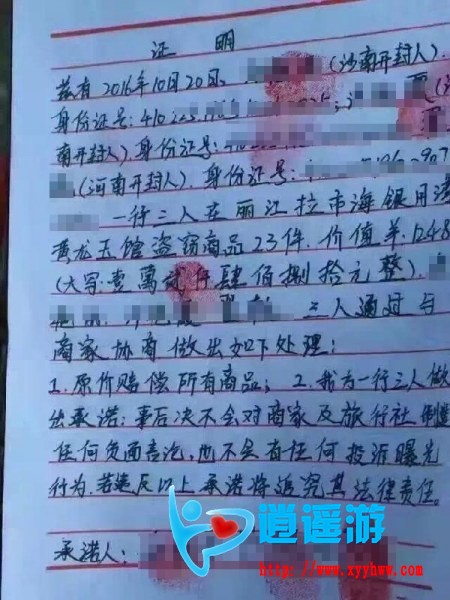 证 明
兹有2016年10月20日, (沙南开封人).
身份证号: 410225
南开封人). 身份证号:
(河南开封人). 身份证号:
一行三人在丽江拉市海银月湾
黄龙玉馆盗窃商品23件. 价值￥1248
(大写: 壹萬贰仟肆佰捌拾元整).
三人通过与
商家协商做出如下处理:
1. 原价赔偿所有商品; 2. 我方一行三人做
出承诺: 事后决不会对商家及旅行社制造
任何负面言论, 也不会有任何投诉曝光
行为. 若违反以上承诺将追究其法律责任。
承诺人:
逍遥游
http://www.xyyhww.com